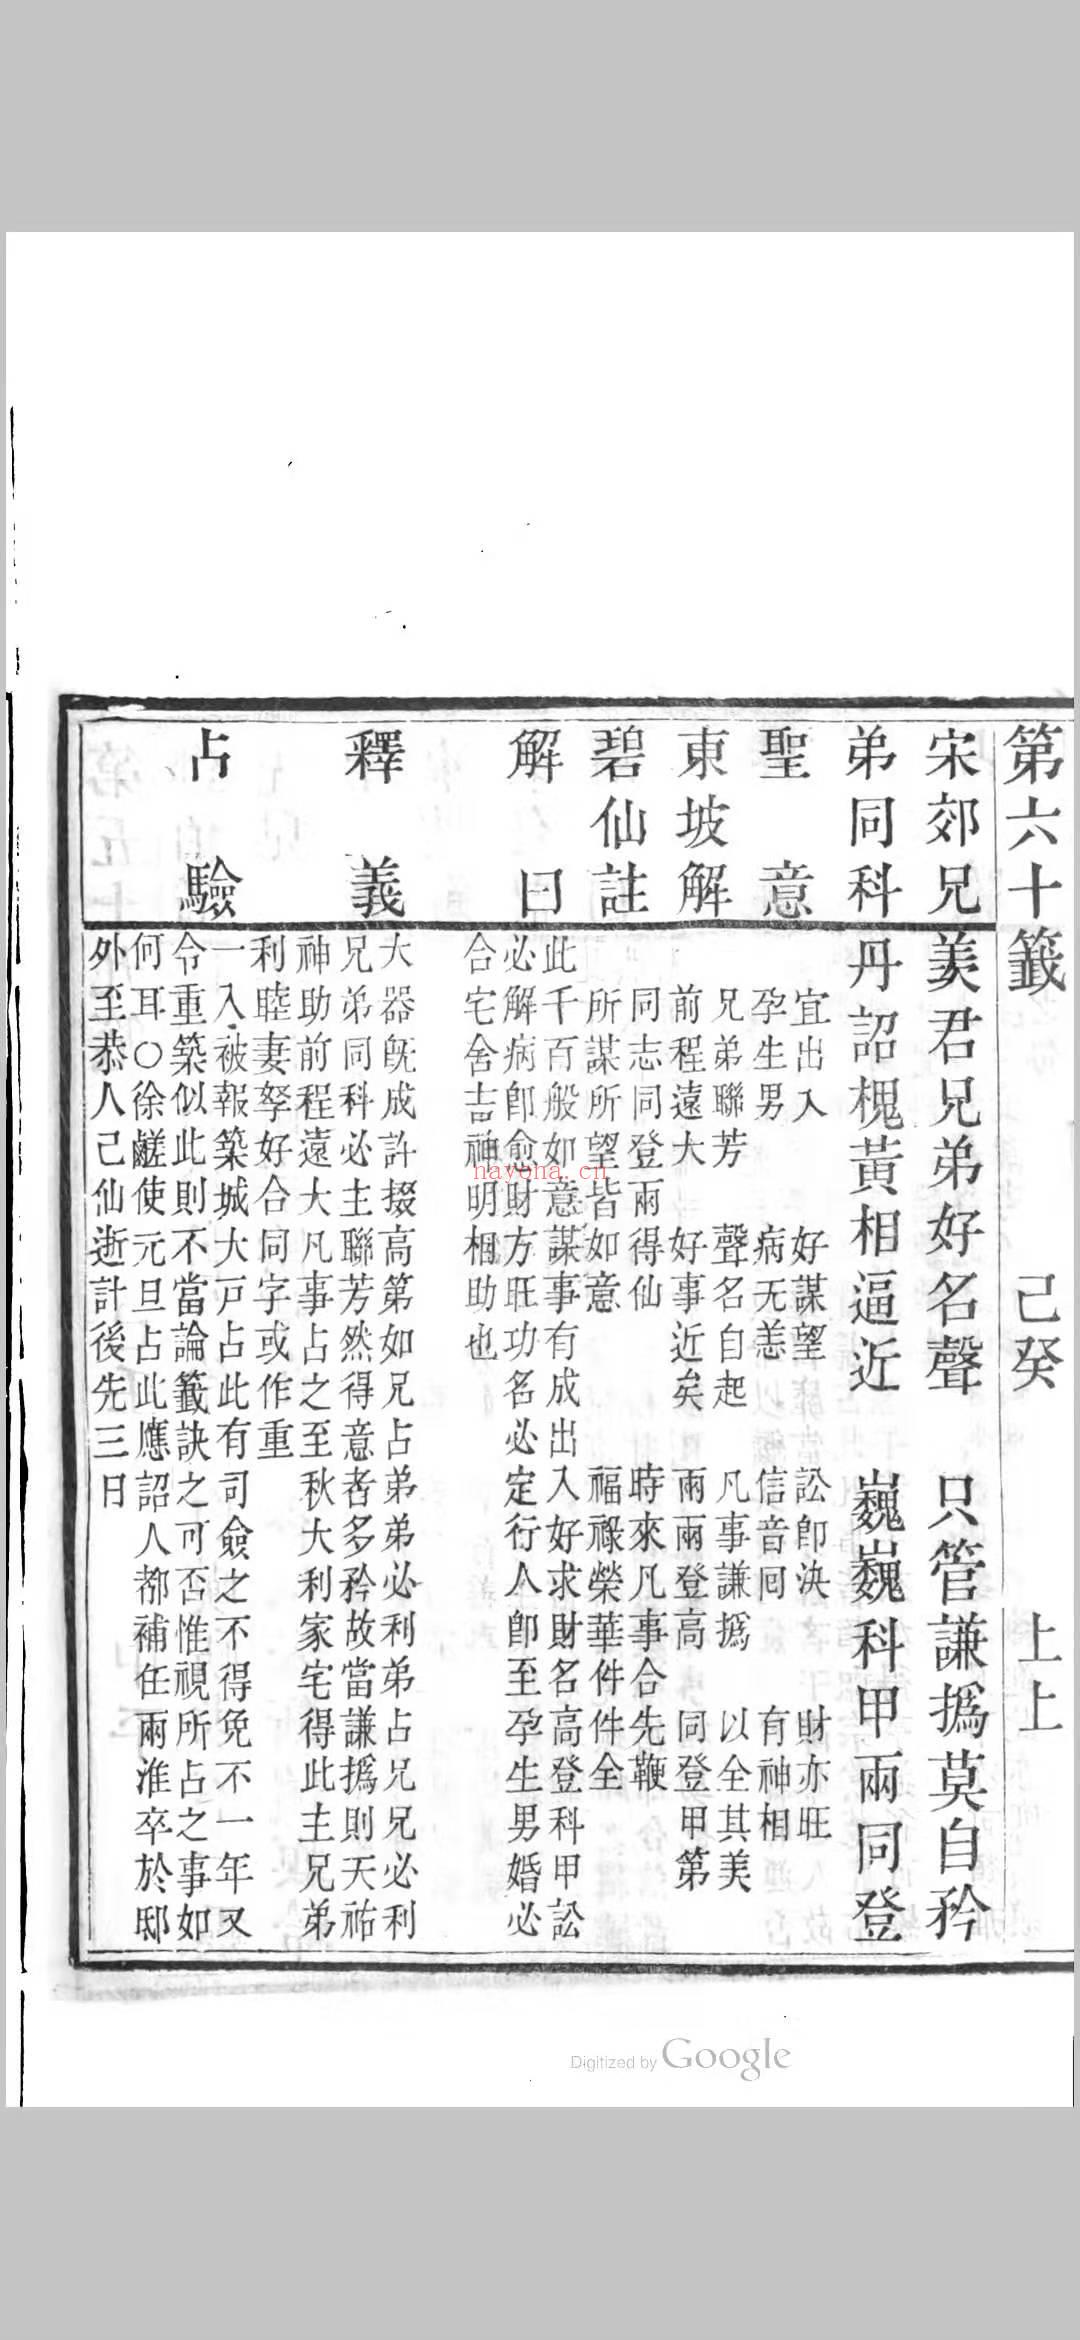 第六十籤 己癸 上上
宋郊兄弟同科
羡君兄弟好名聲 只管謙撝莫自矜
丹詔槐黃相逼近 巍巍科甲兩同登
聖意
宜出入 好謀望 訟即決 財亦旺
孕生男 病无恙 信音回 有神相
東坡解
兄弟聯芳 聲名自起 凡事謙撝 以全其美
前程遠大 好事近矣 兩兩登高 同登甲第
碧仙註
同志同登兩得仙 時來凡事合先鞭
所謀所望皆如意 福祿榮華件件全
解曰
此千百般如意謀事有成出入好求財名高登科甲訟
必解病即愈財方旺功名必定行人即至孕生男婚必
合宅舍吉神明相助也
釋義
大器既成許掇高第如兄占弟弟必利弟占兄兄必利
兄弟同科必主聯芳然得意者多矜故當謙撝則天祐
神助前程遠大凡事占之至秋大利家宅得此主兄弟
利睦妻孥好合同字或作重
占驗
一人被報築城大戶占此有司僉之不得免不一年又
令重築似此則不當論籤訣之可否惟視所占之事如
何耳○徐鹺使元旦占此應詔人都補任兩淮卒於邸
外至恭人己仙逝計後先三日
nayona.cn
Digitized by Google